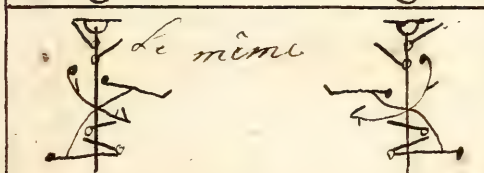 Le même